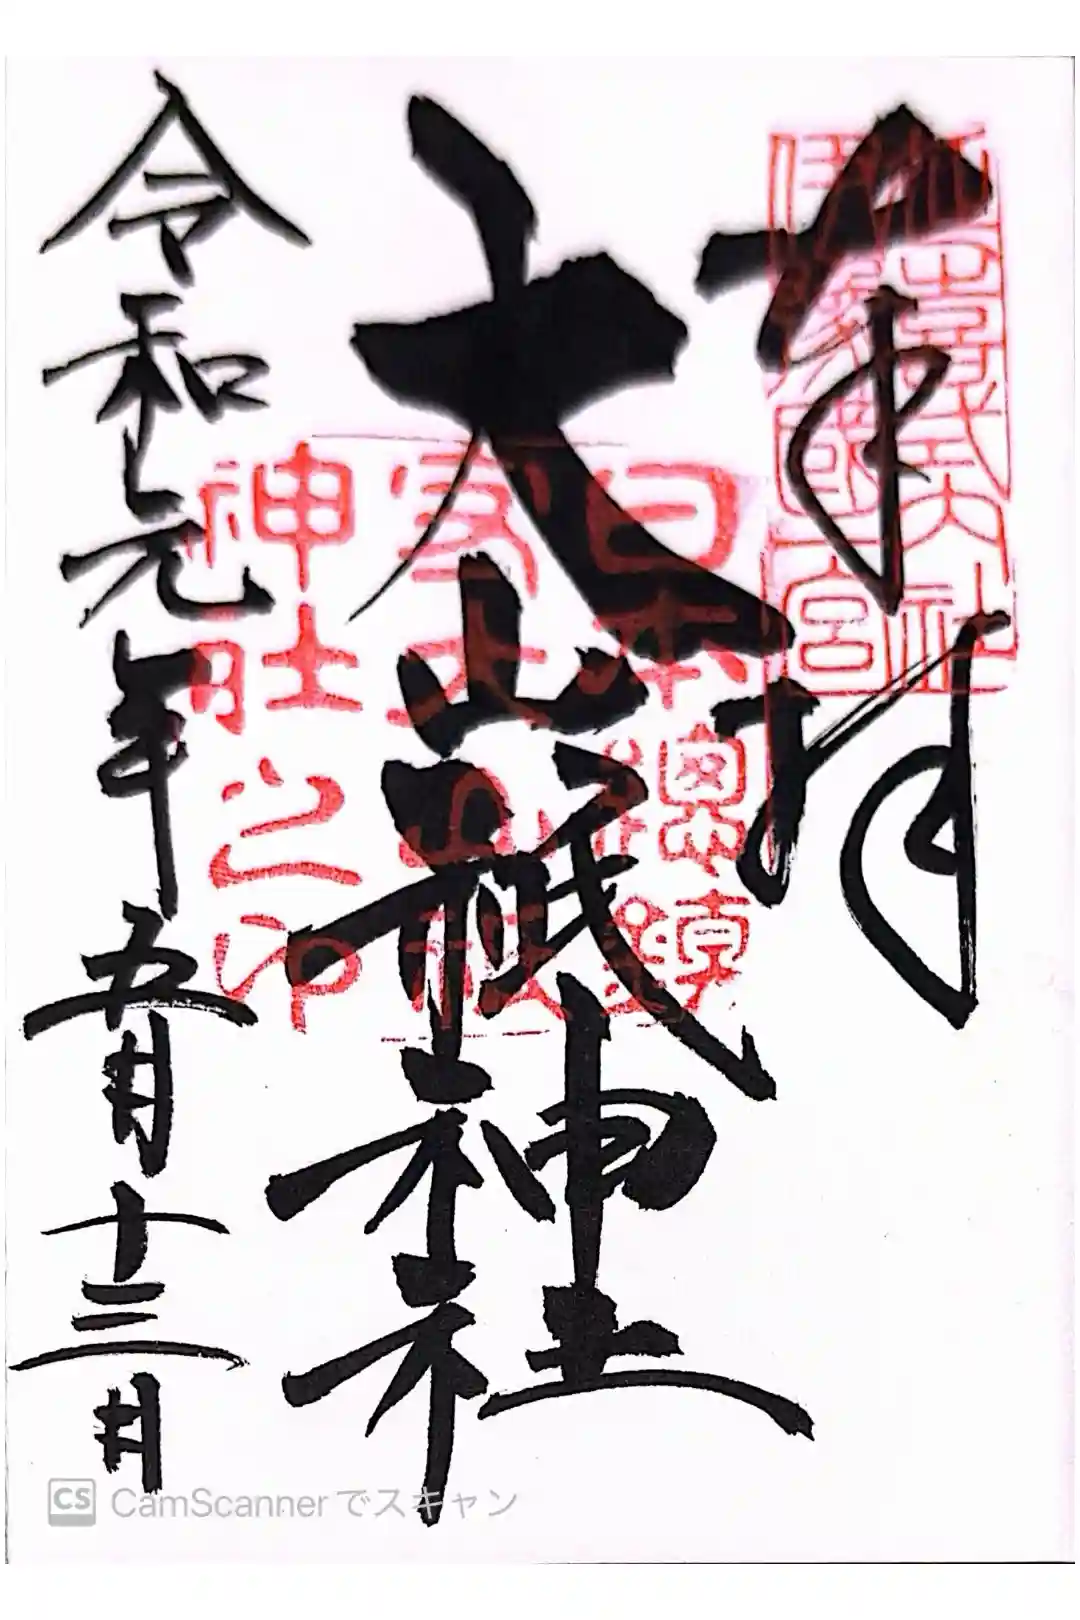 奉拝
延喜式内社
伊豫國一宮
大山祇神社
日本總鎮
神社之印
令和元年五月十三日
CS CamScannerでスキャン